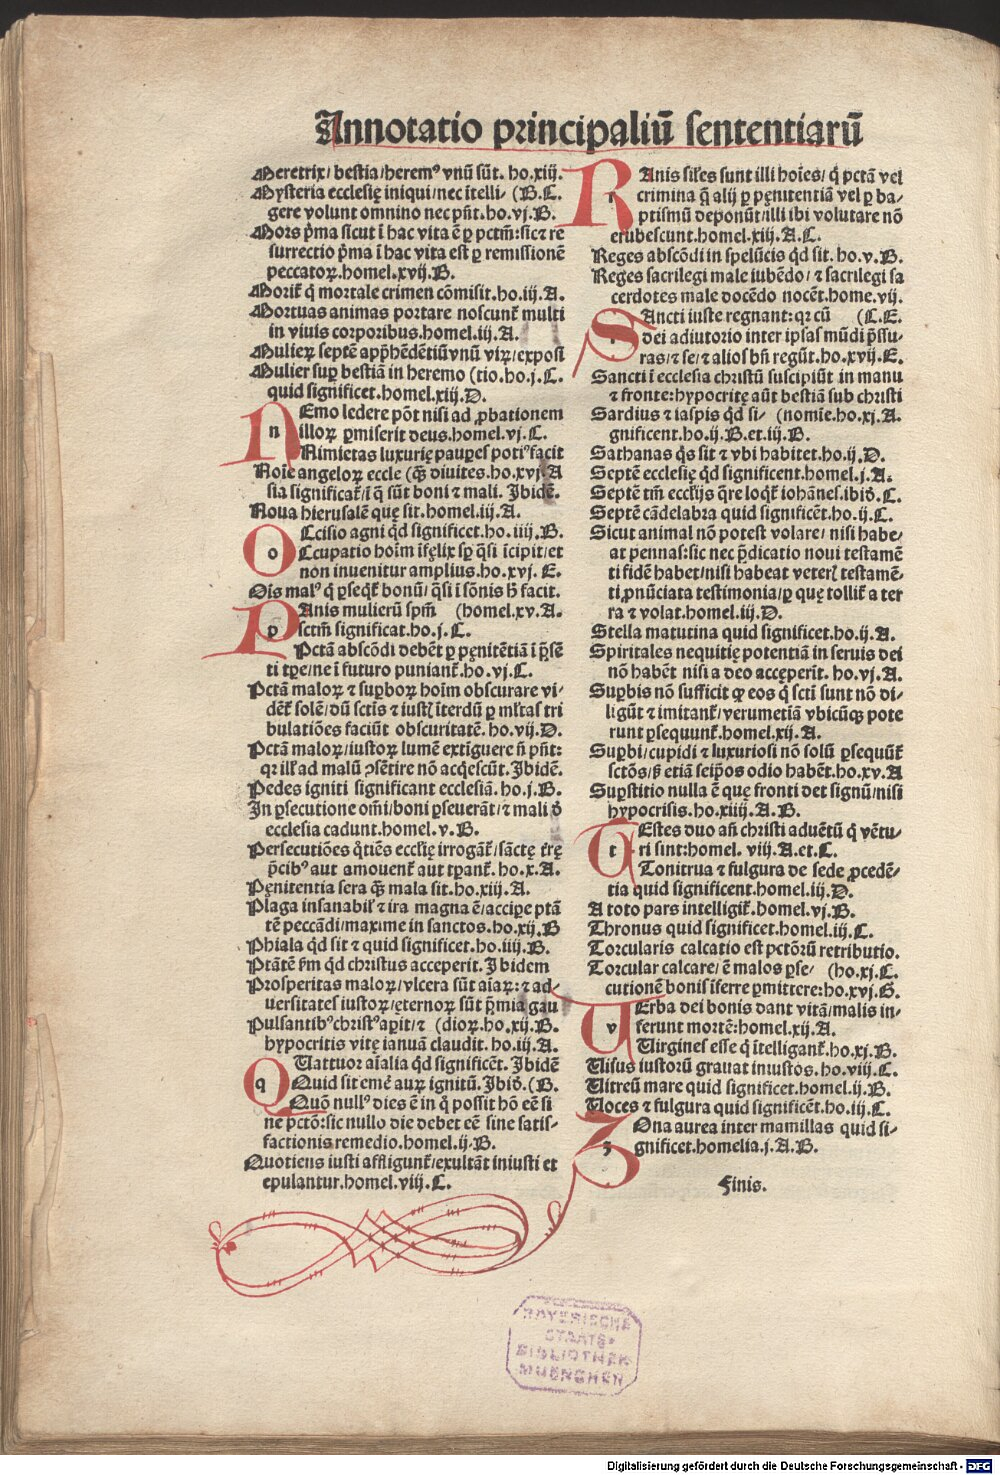 Annotatio principaliū sententiarū
Meretrix/ bestia/heremꝰ vnū sūt. ho.xiij.
Mysteria ecclesię iniqui/nec ītelli- (B.C.
gere volunt omnino nec pn̄t.ho.vj.B.
Mors p̄ma sicut ī hac vita ē ꝑ pctm̄: sic ⁊ re
surrectio p̄ma ī hac vita est ꝑ remissionē
peccatoꝝ.homel.xvij.B.
Morit᷑ q̇ mortale crimen cōmisit.ho.iij.A.
Mortuas animas portare noscunt᷑ multi
in viuis corporibus.homel.iij.A.
Mulieꝝ septē app̄hēdētiū vnū viꝝ/exposi
Mulier suꝑ bestiā in heremo (tio.ho.j.C.
quid significet.homel.xiij.D.
NEmo ledere pōt nisi ad ꝓbationem
n illoꝝ ꝑmiserit deus.homel.vj.C.
Nimietas luxurię pauꝑes potiꝰ facit
Noīe angeloꝝ eccle (q̄ꝫ diuites.ho.xvj.A
sia significat᷑/ī q̇ sūt boni ⁊ mali. Ibidē.
Noua hierusalē quę sit.homel.iij.A.
OCcisio agni q̇d significet.ho.iiij.B.
o Ccupatio hoīm īfęlix sꝑ q̇si īcipit/et
non inuenitur amplius.ho.xvj. E.
Oīs malꝰ q̇ ꝑseqt᷑ bonū/q̇si ī sōnis h̄ facit.
PAnis mulierū spm̄ (homel.xv.A.
p sctm̄ significat.ho.j.C.
Pctā abscōdi debēt ꝑ pęnitētiā ī p̄sē
ti tꝑe/ne ī futuro puniant᷑.ho.vj.C.
Pctā maloꝝ ⁊ suꝑboꝝ hoīm obscurare vi-
dēt᷑ solē/dū sctīs ⁊ iustꝭ īterdū ꝑ ml̄tas tri
bulatiōes faciūt obscuritatē. ho.vij.D.
Pctā maloꝝ/iustoꝝ lumē extiguere n̄ pn̄t:
qꝛ illꝭ ad malū ↄsētire nō acq̇escūt. Ibidē.
Pedes igniti significant ecclesiā.ho.j.B.
In ꝑsecutione om̄i/boni ꝑseuerāt/⁊ mali ō
ecclesia cadunt.homel.v.B.
Persecutiōes q̇tiēs ecclīę irrogāt᷑/sāctę trę̄
p̄cibꝰ aut amouent᷑ aut tꝑant᷑.ho.x.A.
Pęnitentia sera q̄ꝫ mala sit.ho.xiij.A.
Plaga insanabilꝭ ⁊ ira magna ē/accipe ptā
tē peccādi/maxime in sanctos.ho.xij.B
Phiala q̇d sit ⁊ quid significet.ho.iiij.B.
Ptātē p̄m q̇d christus acceperit. Ibidem
Prosperitas maloꝝ/vlcera sūt aīaꝝ: ⁊ ad-
uersitates iustoꝝ/ęternoꝝ sūt p̄mia gau
Pulsantibꝰ christꝰ aꝑit/⁊ (dioꝝ.ho.xij.B.
hypocritis vitę ianuā claudit.ho.iij.A.
QUattuor aīalia q̇d significēt. Ibidē
q Quid sit emē auꝝ ignitū. Ibiđ.(B.
Quō nullꝰ dies ē in q̇ possit hō eē si
ne pctō: sic nullo die debet eē sine satis-
factionis remedio.homel.ij.B.
Quotiens iusti affligunt᷑/exultāt iniusti et
epulantur.homel.viij.C.
RAnis siles sunt illi hoīes/ q̇ pctā vel
r crimina q̄ alij ꝑ pęnitentiā vel ꝑ ba-
ptismū deponūt/illi ibi volutare nō
erubescunt.homel.xiij.A.C.
Reges abscōdi in spelūcis q̇d sit. ho.v.B.
Reges sacrilegi male iubēdo/ ⁊ sacrilegi sa
cerdotes male docēdo nocēt.home.vij.
SAncti iuste regnant: qꝛ cū (C.E.
dei adiutorio inter ipsas mūdi p̄ssu-
ras/⁊ se/⁊ alios bn̄ regūt.ho.xvij.E.
Sancti ī ecclesia christū suscipiūt in manu
⁊ fronte: hypocritę aūt bestiā sub christi
Sardius ⁊ iaspis q̇d si- (nomīe.ho.xj.A.
gnificent.ho.ij.B.et.iij.B.
Sathanas q̇s sit ⁊ vbi habitet.ho.ij.D.
Septē ecclesię q̇d significent.homel.j.A.
Septē tm̄ ecclījs q̄re loqt᷑ iohānes.ibiđ.C.
Septē cādelabra quid significēt.ho.ij.C.
Sicut animal nō potest volare/ nisi habe-
at pennas: sic nec p̄dicatio noui testamē
ti fidē habet/nisi habeat veterꝭ testamē-
ti ꝓnūciata testimonia/ꝑ quę tollit᷑ a ter
ra ⁊ volat.homel.iij.D.
Stella matutina quid significet.ho.ij.A.
Spiritales nequitię potentiā in seruis dei
nō habēt nisi a deo accęperīt. ho.vj.A.
Suꝑbis nō sufficit qꝙ eos q̇ scti sunt nō di-
ligūt ⁊ imitant᷑/verumetiā vbicūqꝫ pote
runt ꝑsequunt᷑.homel.xij.A.
Suꝑbi/cupidi ⁊ luxuriosi nō solū ꝑsequūt᷑
sctōs/ß etiā seip̄os odio habēt.ho.xv.A
Suꝑstitio nulla ē quę fronti det signū/nisi
hypocrisis.ho.xiiij.A.B.
TEstes duo an̄ christi aduētū q̇ vētu-
t ri sint: homel. viij.A.et.C.
Tonitrua ⁊ fulgura de sede ꝓcedē-
tia quid significent.homel.iij.D.
A toto pars intelligit᷑.homel.vj.B.
Thronus quid significet.homel.iij.C.
Torcularis calcatio est pctōrū retributio.
Torcular calcare/ē malos ꝑse- (ho.xj.C.
cutionē bonis īferre ꝑmittere: ho.xvj.G.
VErba dei bonis dant vitā/malis in-
v ferunt mortē: homel.xij.A.
Virgines esse q̇ ītelligant᷑.ho.xj.B.
Visus iustorū grauat iniustos.ho.viij.C.
Vitreū mare quid significet.homel.ij.B.
Voces ⁊ fulgura quid significēt.ho.iij.C.
ZOna aurea inter mamillas quid si-
z gnificet.homelia.j.A.B.
Finis.
BAYERISCHE
STAATS-
BIBLIOTHEK
MUENCHEN
Digitalisierung gefördert durch die Deutsche Forschungsgemeinschaft - DFG